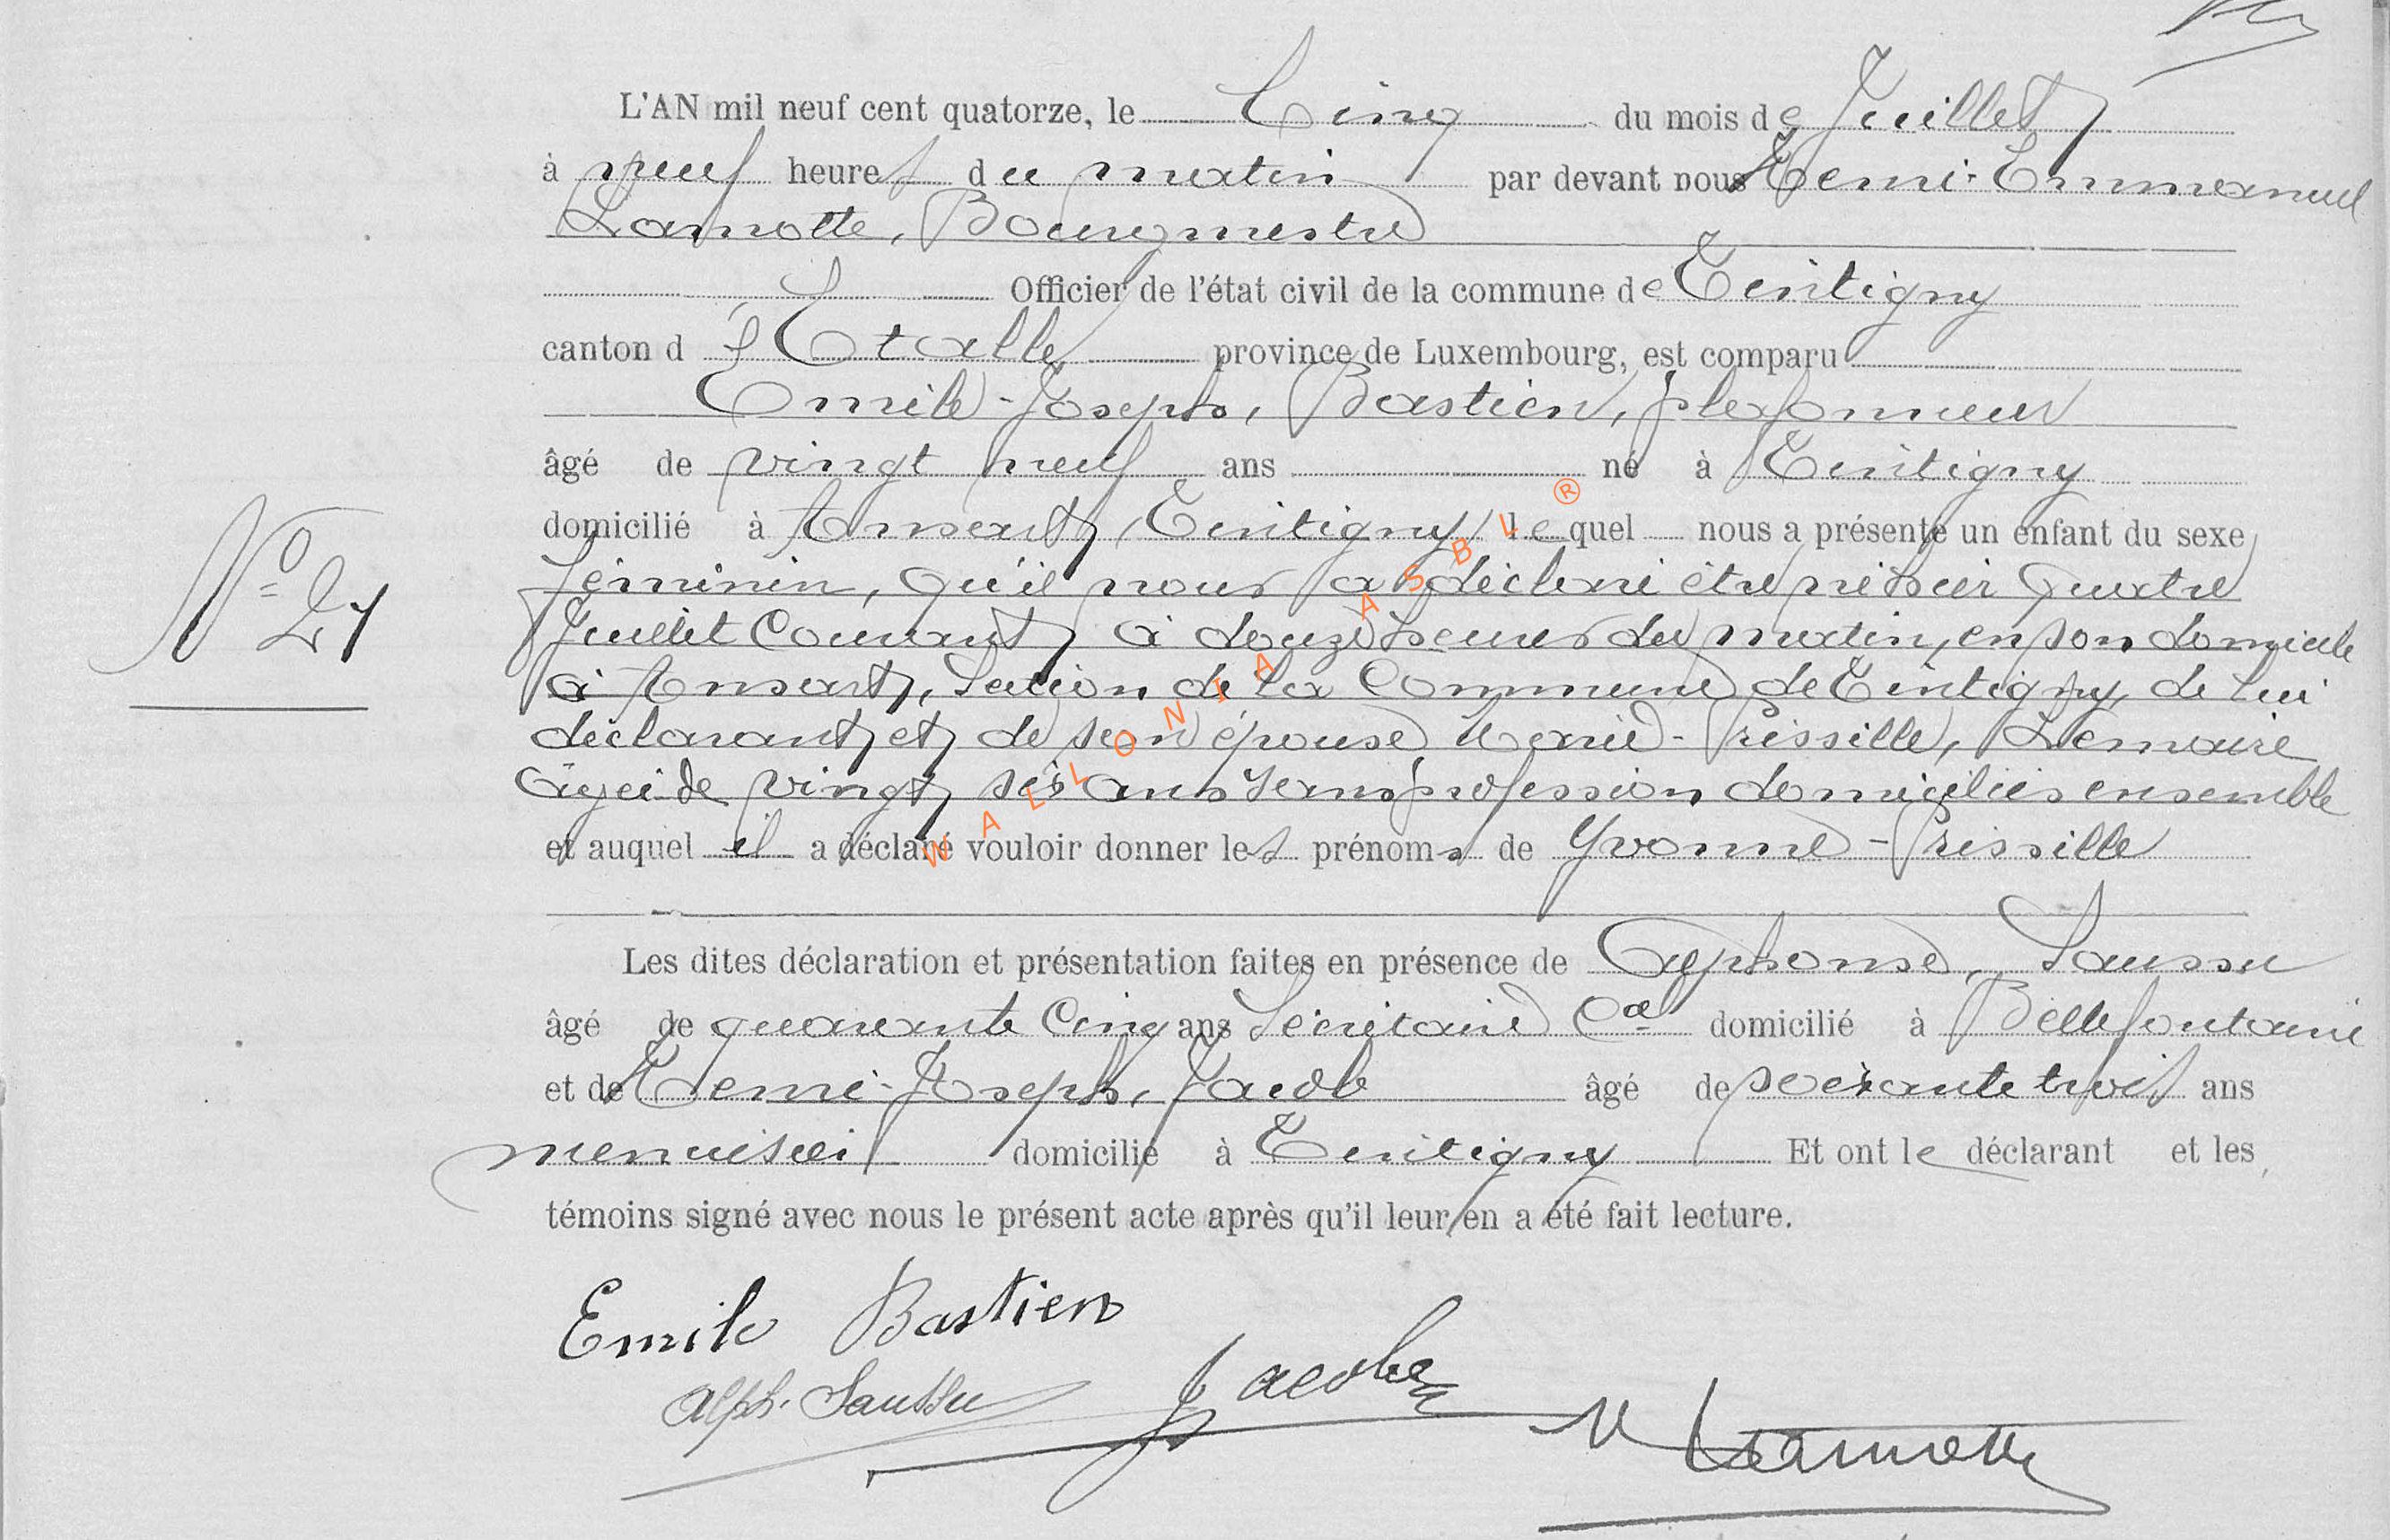 L'AN mil neuf cent quatorze, le Cinq du mois de Juillet
à neuf heures du matin par devant nous Remi-Emmanuel
Lamotte, Bourgmestre
Officier de l'état civil de la commune de Tintigny
canton d'Etalle province de Luxembourg, est comparu
Emile-Joseph, Bastien, plafonneur
âgé de vingt neuf ans né à Tintigny
domicilié à Ansart, Tintigny lequel nous a présenté un enfant du sexe
féminin, qu'il nous a déclaré être né hier quatre
Juillet Courant, à douze heures du matin, en son domicile
à Ansart, Section de la Commune de Tintigny, de lui
déclarant et de son épouse Marie-Prissille, Lemaire
âgée de vingt six ans sans profession domiciliés ensemble
et auquel il a déclaré vouloir donner les prénoms de Yvonne-Prissille
Les dites déclaration et présentation faites en présence de Alphonse, Saussu
âgé de quarante Cinq ans Secrétaire Cal domicilié à Bellefontaine
et de Remi-Joseph, Jacob âgé de soixante trois ans
menuisier domicilié à Tintigny Et ont le déclarant et les
témoins signé avec nous le présent acte après qu'il leur en a été fait lecture.
No 27
WALLONIA ASBL ®
Emile Bastien
Alph. Saussu Jacob R Lamotte